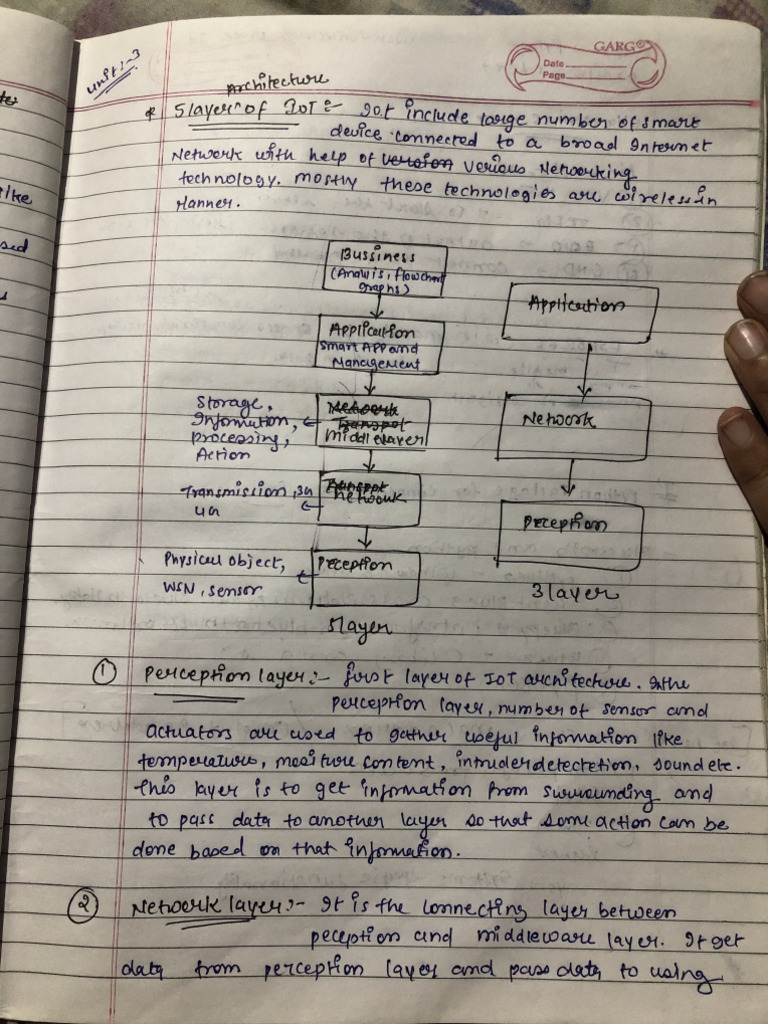 GARG
Date
Page
Unit:-3
Architecture
5 layer of IoT :- IoT include large number of smart
device connected to a broad Internet
Network with help of version verious Networking
technology. mostly these technologies are wireless in
Manner.
Bussiness
(Analysis, flowchart
graphs)
Application
Smart APP and
Management
Storage,
Information,
processing,
Action
Network
Transpot
middlelayer
Transmission, 3G
4G
Transpot
Network
Physical object,
WSN, sensor
Perception
5 layer
Application
Network
Perception
3 layer
① Perception layer :- first layer of IoT architecture. In the
perception layer, number of sensor and
actuators are used to gather useful information like
temperature, moisture content, intruder detectetion, sound etc.
this layer is to get information from surrounding and
to pass data to another layer so that some action can be
done based on that information.
② Network layer :- It is the connecting layer between
peception and middleware layer. It get
data from perception layer and pass data to using